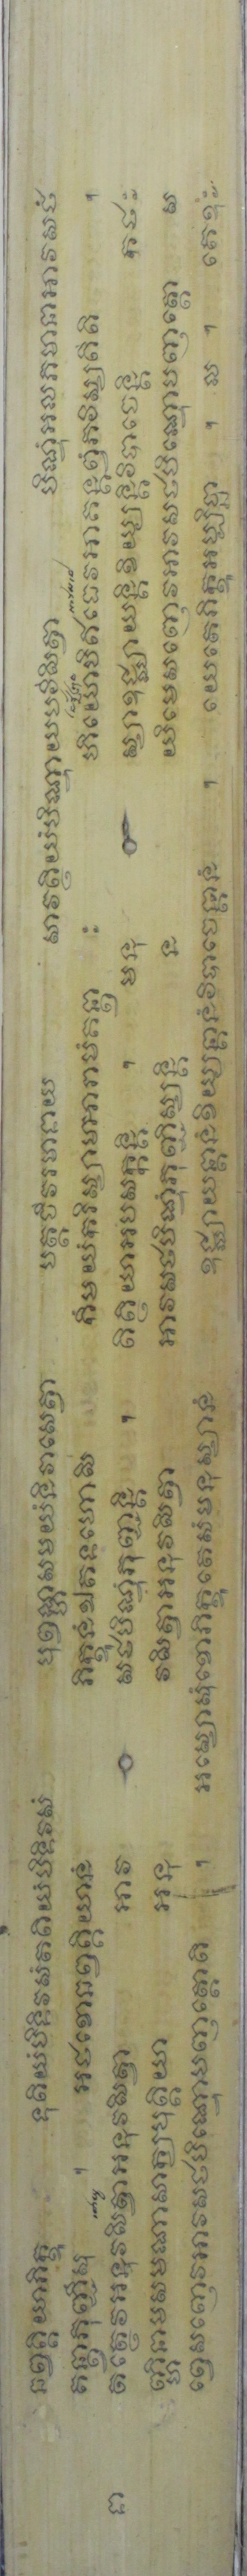 ឆព្វគ្គិយាភិក្ខូ ទុតិយំបិទិវសំតតិយំបិទិវសំ បុព្វណ្ហសមយំនិវាសេត្វា បត្តចីវរមាទាយ សាវត្ថិយំបិណ្ឌាយបវិសិត្វា បិណ្ឌំអលភមានាអាវសថំ
គន្ត្វាភុញ្ជឹសុ ។ អថខោឆព្វគ្គិយានំ ភិក្ខូនំឯតទហោសិ កឹមយំករិស្សាមអារាមំគន្ត្វា ះ ហិយ្យោបិឥធេវអាគន្តព្វំភវិស្សតីតិ ។
តត្ថេវអនុវសិត្វាអនុវសិត្វា អាវ សថបិណ្ឌំភុញ្ជន្តិ ។ តិត្ថិយាអបសក្កន្តិ ។ មនុ ស្សាឧជ្ឈាយន្តិខិយ្យន្តិវិបាចេន្តិ កថះ
ញ្ហិនាមសមណាសក្យបុត្តិយា អនុ វសិត្វាអនុវសិត្វា អាវសថបិណ្ឌំភុញ្ជិស្សន្តិ ន យិមេសញ្ញេវអាវសថបិណ្ឌោបញ្ញត្តោ ស
ព្វេសញ្ញេវអាវសថបិណ្ឌោបញ្ញត្តោតិ ។ អស្សោសុំខោភិក្ខូតេសំមនុស្សានំ ឧជ្ឈាយន្តានំខិយ្យន្តានំវិបាចេន្តានំ ។ យេតេភិក្ខូអប្បិច្ឆា ។ ល ។ តេឧះ